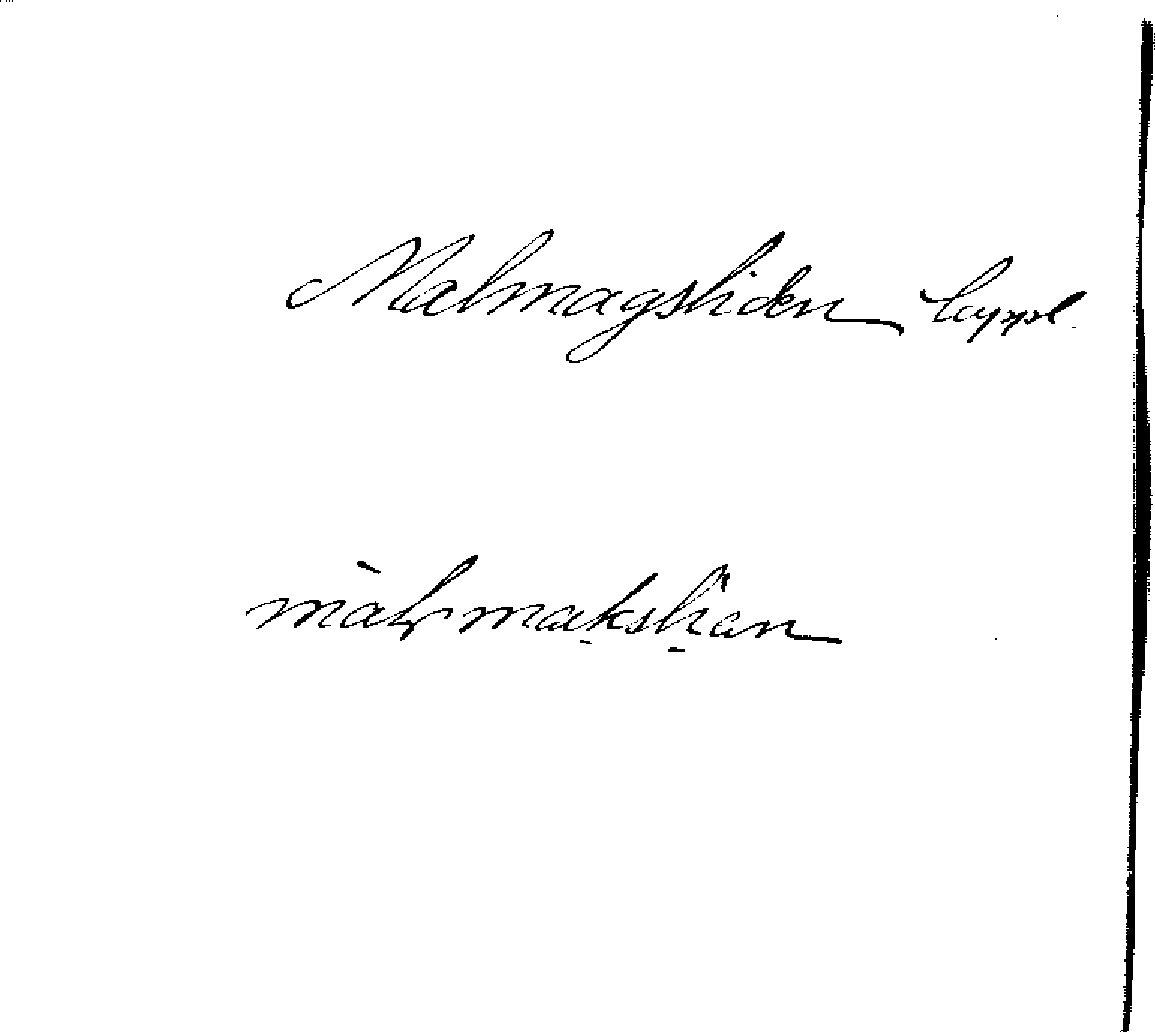 Malmagsliden Lappl.
màlmakslian